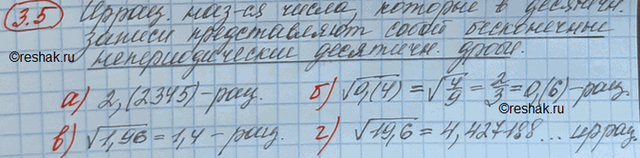 3.5 Иррац. наз-ся числа, которые в десятичн.
записи представляют собой бесконечные
непериодические десятичн. дроби.
©reshak.ru
©reshak.ru
а) 2,(2345) - рац. б) √0,(4) = √4/9 = 2/3 = 0,(6) - рац.
в) √1,96 = 1,4 - рац. г) √19,6 = 4,427188... иррац.